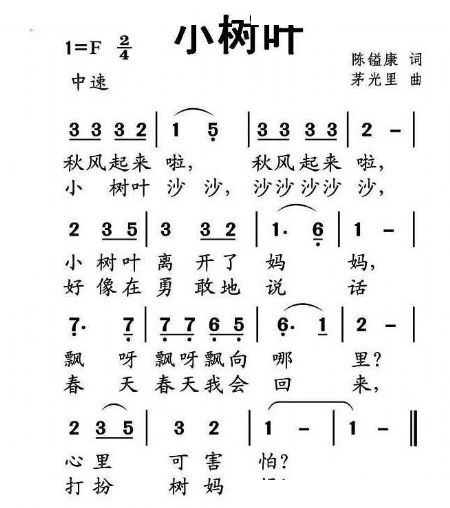 小树叶
1=F 2/4
陈镒康 词
中速
茅光里 曲
3 3 3 2 | 1 5 | 3 3 3 3 | 2 – |
秋风起来 啦， 秋风起来 啦，
小 树叶 沙 沙， 沙沙沙沙 沙，
2 3 5 | 3 3 2 | 1· 6 | 1 – |
小 树叶 离 开了 妈 妈，
好 像在 勇 敢地 说 话
7· 7 | 7 7 6 5 | 6· 1 | 2 – |
飘 呀 飘呀飘向 哪 里？
春 天 春天我会 回 来，
2 3 5 | 3 2 | 1 – | 1 – ‖
心 里 可 害 怕？
打 扮 树 妈